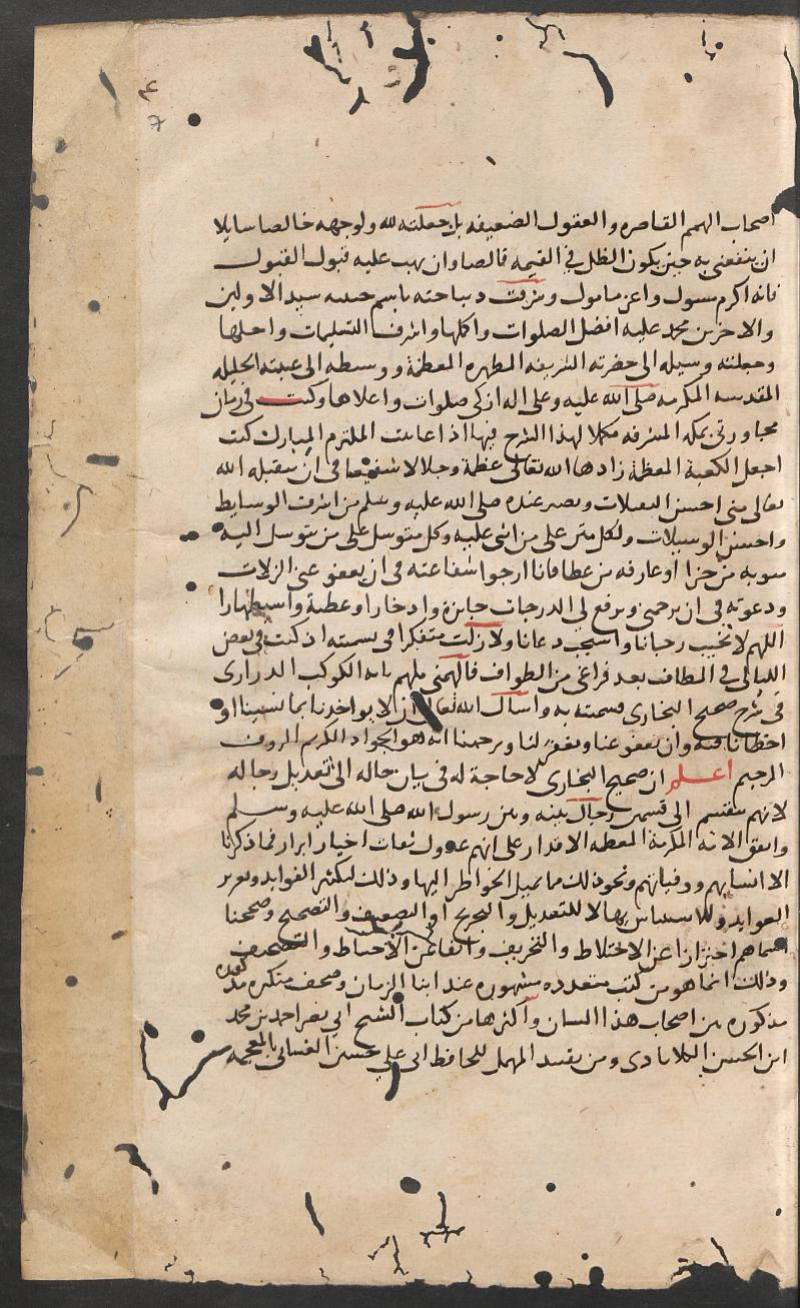 ٤
٧
اصحاب الهمم القاصره والعقول الضعيفه بل جعلته لله ولوجهه خالصا سايلا
ان ينفعنى به حين يكون الظل فى القيمه قالصا وان يهب عليه قبول القبول
فانه اكرم مسول واعز مامول وشرفت ديباجته باسم حبيبه سيد الاولين
والاخرين محمد عليه افضل الصلوات واكملها واشرف التسليمات واجلها
وجعلته وسيله الى حضرته الشريفه المطهره المعظمة ووسطه الى عتبته الجليله
المقدسه المكرمه صلى الله عليه وعلى اله ازكى صلوات واعلاها وكنت فى زمان
مجاورتى بمكه المشرفه مكملا لهذا الشرح فيها اذا عانقت الملتزم المبارك كنت
اجعل الكعبة المعظمة زادها الله تعالى عظمة وجلالا شفيعا فى ان يتقبله الله
تعالى منى احسن التقبلات ويصير عنده صلى الله عليه وسلم من اشرف الوسايط
واحسن الوسيلات ولكل مثن على من اثنى عليه وكل متوسل على من توسل اليه
مثوبه من جزا او عارفه من عطا فانا ارجوا شفاعته فى ان يعفو عن الزلات
ودعوته فى ان يرحمنى ويرفع لى الدرجات جايزة وادخارا وعطية واستظهارا
اللهم لا تخيب رجانا واستجب دعانا ولا زلت متفكرا فى تسميته اذ كنت فى بعض
الليالى فى المطاف بعد فراغى من الطواف فالهمنى ملهم بانه الكوكب الدرارى
فى شرح صحيح البخارى فسميته به واسال الله تعالى ان لا يواخذنا بما نسينا او
اخطانا فيه وان يعفو عنا ويغفر لنا ويرحمنا انه هو الجواد الكريم الروف
الرحيم اعلم ان صحيح البخارى لا حاجة له فى بيان حاله الى تعديل رجاله
لانهم منقسم الى قسمين رجال بينه وبين رسول الله صلى الله عليه وسلم
واتفق الائه المكرمة المعظمه الاقدار على انهم عدول ثقات اخيار ابرار فما ذكرنا
الا انسابهم ووفياتهم ونحو ذلك مما تميل الخواطر اليها وذلك لتكثير الفوايد وتعزيز
العوايد وللاستيناس بها لا للتعديل والتجريح او التضعيف والتصحيح وصححنا
اسماهم احترازا عن الاختلاط والتحريف واتقا عن الاحساط والتصحيف
وذلك انما هو من كتب متعدده مشهوره عند ابنا الزمان وصحف متكثره مذكوره
مذكوره بين اصحاب هذا اللسان واكثرها من كتاب الشيخ ابى نصر احمد بن محمد
ابن الحسين الكلاباذى ومن تقييد المهمل للحافظ ابى على حسين الغسانى بالمعجمه